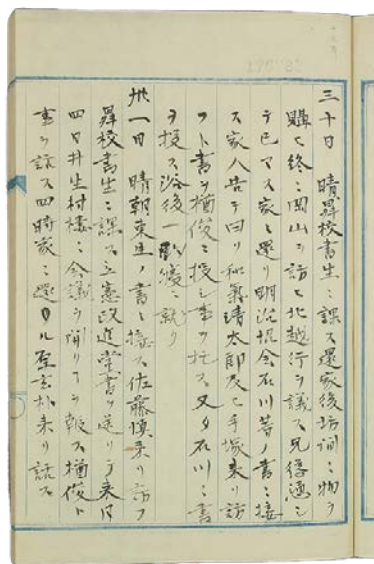 三十日 晴昇校書生ニ課ス還家後坊間ニ物ヲ
購ヒ終ニ岡山ヲ訪ヒ北越行ヲ議ス兄
テ已マス家ニ還リ明治 会石川等ノ書ニ接
ス家人告テ曰リ和氣清太郎及ヒ手塚来リ訪
フト書ヲ楢俊ニ授ヒ書ヲ托ス又タ石川ニ書
ヲ投ス浴後一 ニ就ク
卅一日 晴朝東生ノ書ニ接ス佐藤慎来リ訪フ
昇校書生ニ課ス立憲政進党書ヲ送リテ来ル
四日井生村楼ニ会議ヲ開リヿヲ報ス楢俊ト
来リ話ス四時家ニ還ル 玄朴来リ話ス